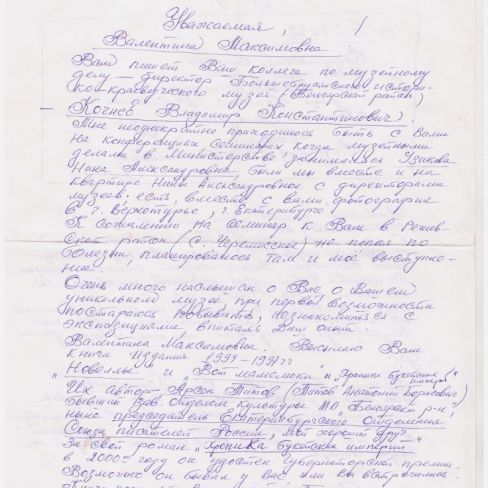 Уважаемая, !
Валентина Максимовна
Вам пишет Ваш коллега по музейному
делу – директор Большебрусянского истори-
ко-краеведческого музея (Белоярский район)
Кочнев Владимир Константинович.
Мне неоднократно приходилось быть с Вами
на конференциях, семинарах когда музейными
делами в Министерстве занималась Язикова
Нина Александровна, были мы вместе и на
квартире Нины Александровны с директорами
музеев: есть, вместе с вами фотография
в г. Верхотурье, г. Екатеринбурге
К сожалению на семинар к Вам в Режев-
ской район (с. Черемисское) не попал по
болезни, планировалось там и моё выступле-
ние.
Очень много наслышан о Вас, о Вашем
уникальном музее, при первой возможности
постараюсь побывать, познакомиться с
экспозициями, впитать Ваш опыт.
Валентина Максимовна Высылаю Вам
книги издания 1994-1997гг
"Новеллы" и "Вот мамелюки" "Хроника букотских
Их автор – Арсен Титов (Титов Анатолий Борисович)
бывший зав. отделом культуры МО "Белоярск р-н"
ныне председатель Екатеринбургского отделения
Союза писателей России, мой хороший друг
За свой роман "Хроника букотских империй"
в 2000 году он удостоен губернаторской премии.
Возможно он бывал у вас, или вы встречались